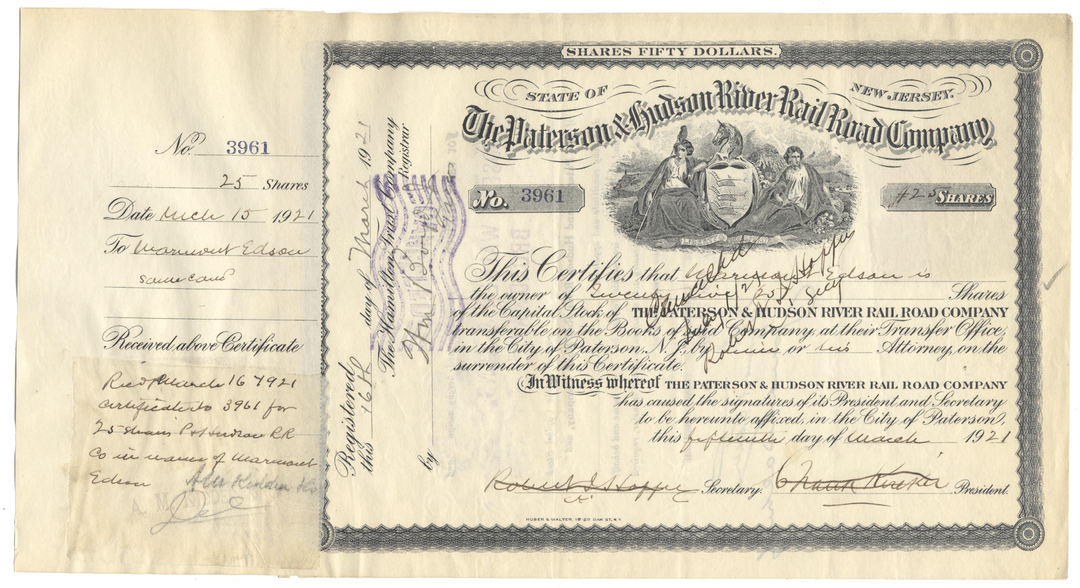 No. 3961
25 Shares
Date Mch 15 1921
To Marmont Edson
Received above Certificate
Rec'd March 16 1921
certificate No 3961 for
25 shares P & Hudson RR
Co in name of Marmont
Edson
Registered
this 16th day of March 1921
The Hamilton Trust Company
Registrar
by
SHARES FIFTY DOLLARS.
STATE OF NEW JERSEY.
The Paterson & Hudson River Rail Road Company
No. 3961
#25 SHARES
This Certifies that Marmont Edson is
the owner of Twenty five Shares
of the Capital Stock of THE PATERSON & HUDSON RIVER RAIL ROAD COMPANY
transferable on the Books of said Company at their Transfer Office,
in the City of Paterson, N.J. by him or his Attorney, on the
surrender of this Certificate.
Cancelled
Robert I Hopper
Secy
In Witness whereof THE PATERSON & HUDSON RIVER RAIL ROAD COMPANY
has caused the signatures of its President and Secretary
to be hereunto affixed, in the City of Paterson,
this fifteenth day of March 1921
Robert I Hopper Secretary. President.
HUBER & WALTER, 18-20 OAK ST, N.Y.